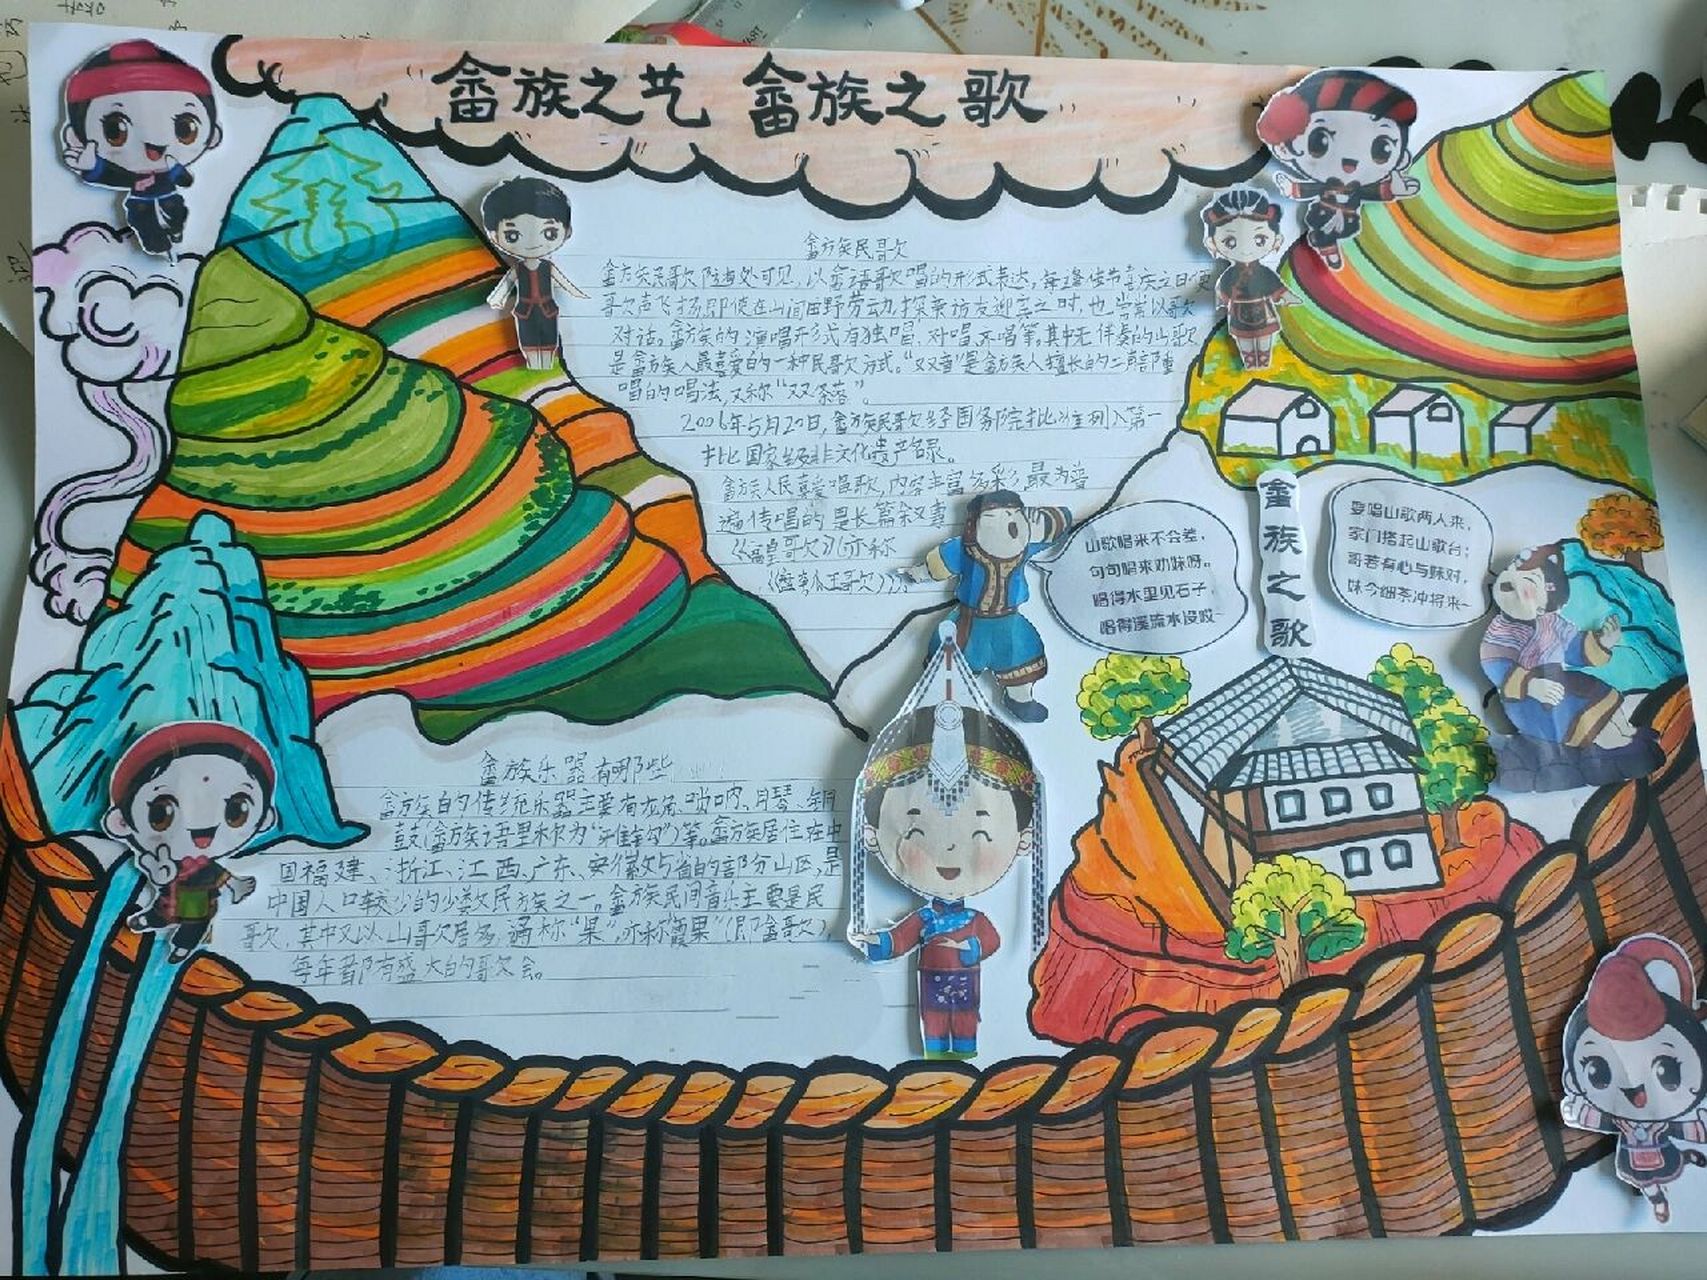 畲族之艺 畲族之歌
畲族民歌
畲族民歌随处可见，以畲语歌唱的形式表达，每逢佳节喜庆之日便
歌声飞扬，即使在山间田野劳动，探亲访友迎宾之时，也尝尝以歌
对话。畲族的演唱形式有独唱、对唱、齐唱等。其中无伴奏的山歌
是畲族人最喜爱的一种民歌方式。“双音”是畲族人擅长的二声部重
唱的唱法，又称“双条落”。
2006年5月20日，畲族民歌经国务院批准列入第一
批国家级非文化遗产名录。
畲族人民喜爱唱歌，内容丰富多彩，最为普
遍传唱的是长篇叙事
《高皇歌》（亦称
《盘瓠王歌》）
山歌唱来不会差，
句句唱来劝妹呀。
唱得水里见石子，
唱得溪流水没哎~
畲族之歌
要唱山歌两人来，
家门搭起山歌台；
哥若有心与妹对，
妹今细茶冲将来~
畲族乐器有哪些
畲族的传统乐器主要有龙角、唢呐、月琴、铜
鼓（畲族语里称为）等。畲族居住在中
国福建、浙江、江西、广东、安徽等省的部分山区，是
中国人口较少的少数民族之一。畲族民间音乐主要是民
歌，其中又以山歌居多，通称“果”，亦称“霞果”（即畲歌），
每年都有盛大的歌会。